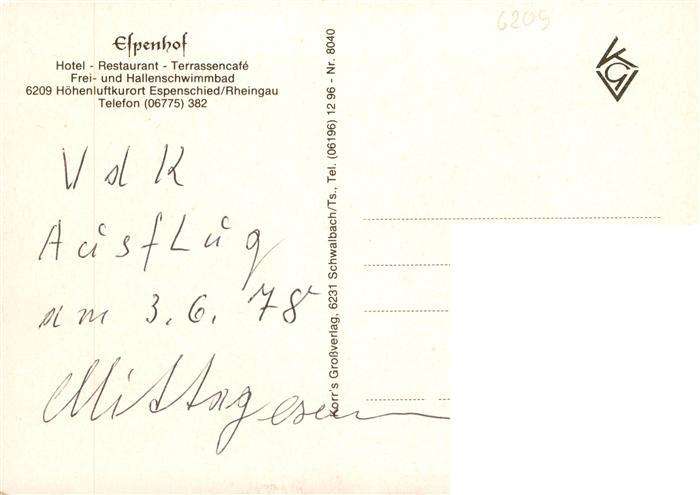 6209
Espenhof
Hotel - Restaurant - Terrassencafé
Frei- und Hallenschwimmbad
6209 Höhenluftkurort Espenschied/Rheingau
Telefon (06775) 382
VdK
Ausflug
am 3.6.78
Mittagessen
Korr's Großverlag, 6231 Schwalbach/Ts., Tel. (06196) 12 96 - Nr. 8040